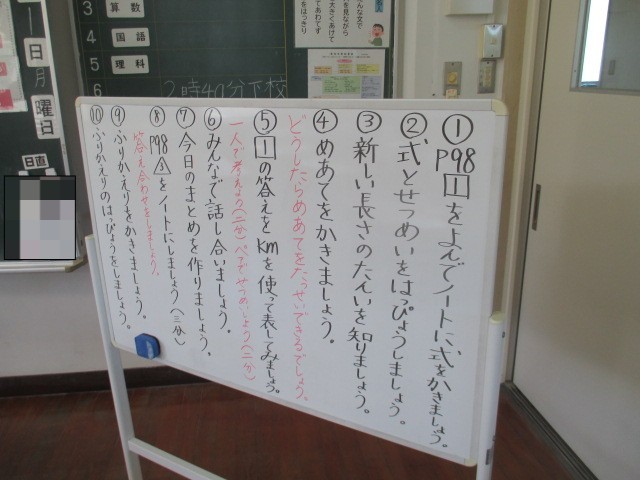 ① P98 1 をよんでノートに式をかきましょう。
② 式とせつめいをはっぴょうしましょう。
③ 新しい長さのたんいを知りましょう。
④ めあてをかきましょう。
どうしたらめあてをたっせいできるでしょう。
⑤ 1 の答えをkmを使って表してみましょう。
一人で考えよう(二分)
せつめいしよう(二分)
⑥ みんなで話し合いましょう。
⑦ 今日のまとめを作りましょう。
⑧ P98 をノートにしましょう(三分)
答え合わせをしましょう。
⑨ ふりかえりをかきましょう。
⑩ ふりかえりのはっぴょうをしましょう。
3 算数
4 国語
5 理科
6
2時40分下校
日
月
曜日
日直